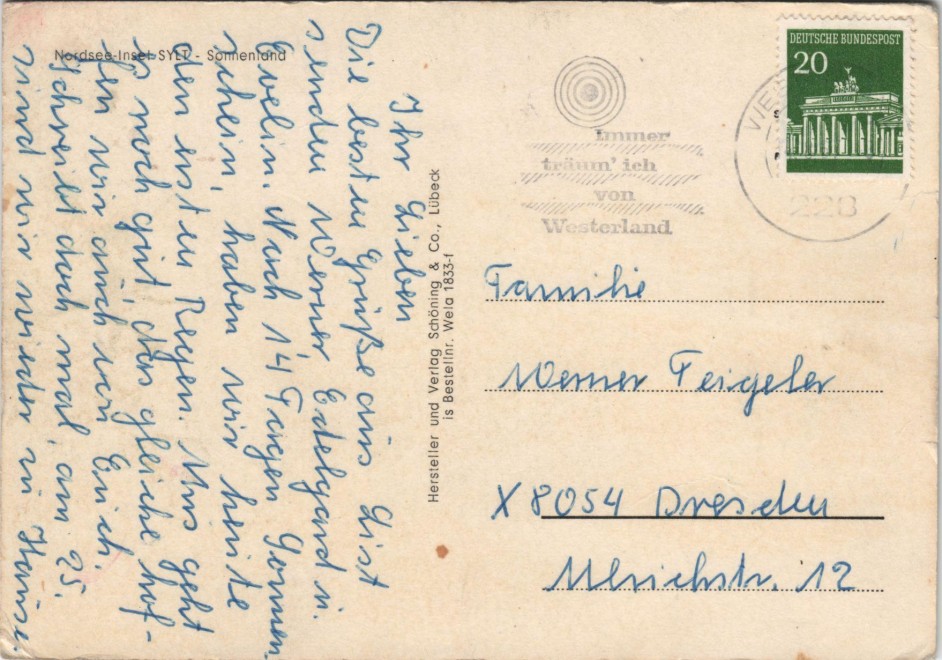 Nordsee-Insel SYLT - Sonnenland
Ihr Lieben
Die besten Grüße aus List
senden Werner Edelgard u.
Evelin. Nach 14 Tagen Sonnen-
schein, haben wir heute
den ersten Regen. Uns geht
es noch gut, das gleiche hof-
fen wir auch von Euch.
Schreibt doch mal, am 25.
sind wir wieder zu Hause.
Hersteller und Verlag Schöning & Co., Lübeck
is Bestellnr. Wela 1833-f
DEUTSCHE BUNDESPOST
20
Immer
träum' ich
von
Westerland
228
Familie
Werner Feigeler
X 8054 Dresden
Ulrichstr. 12